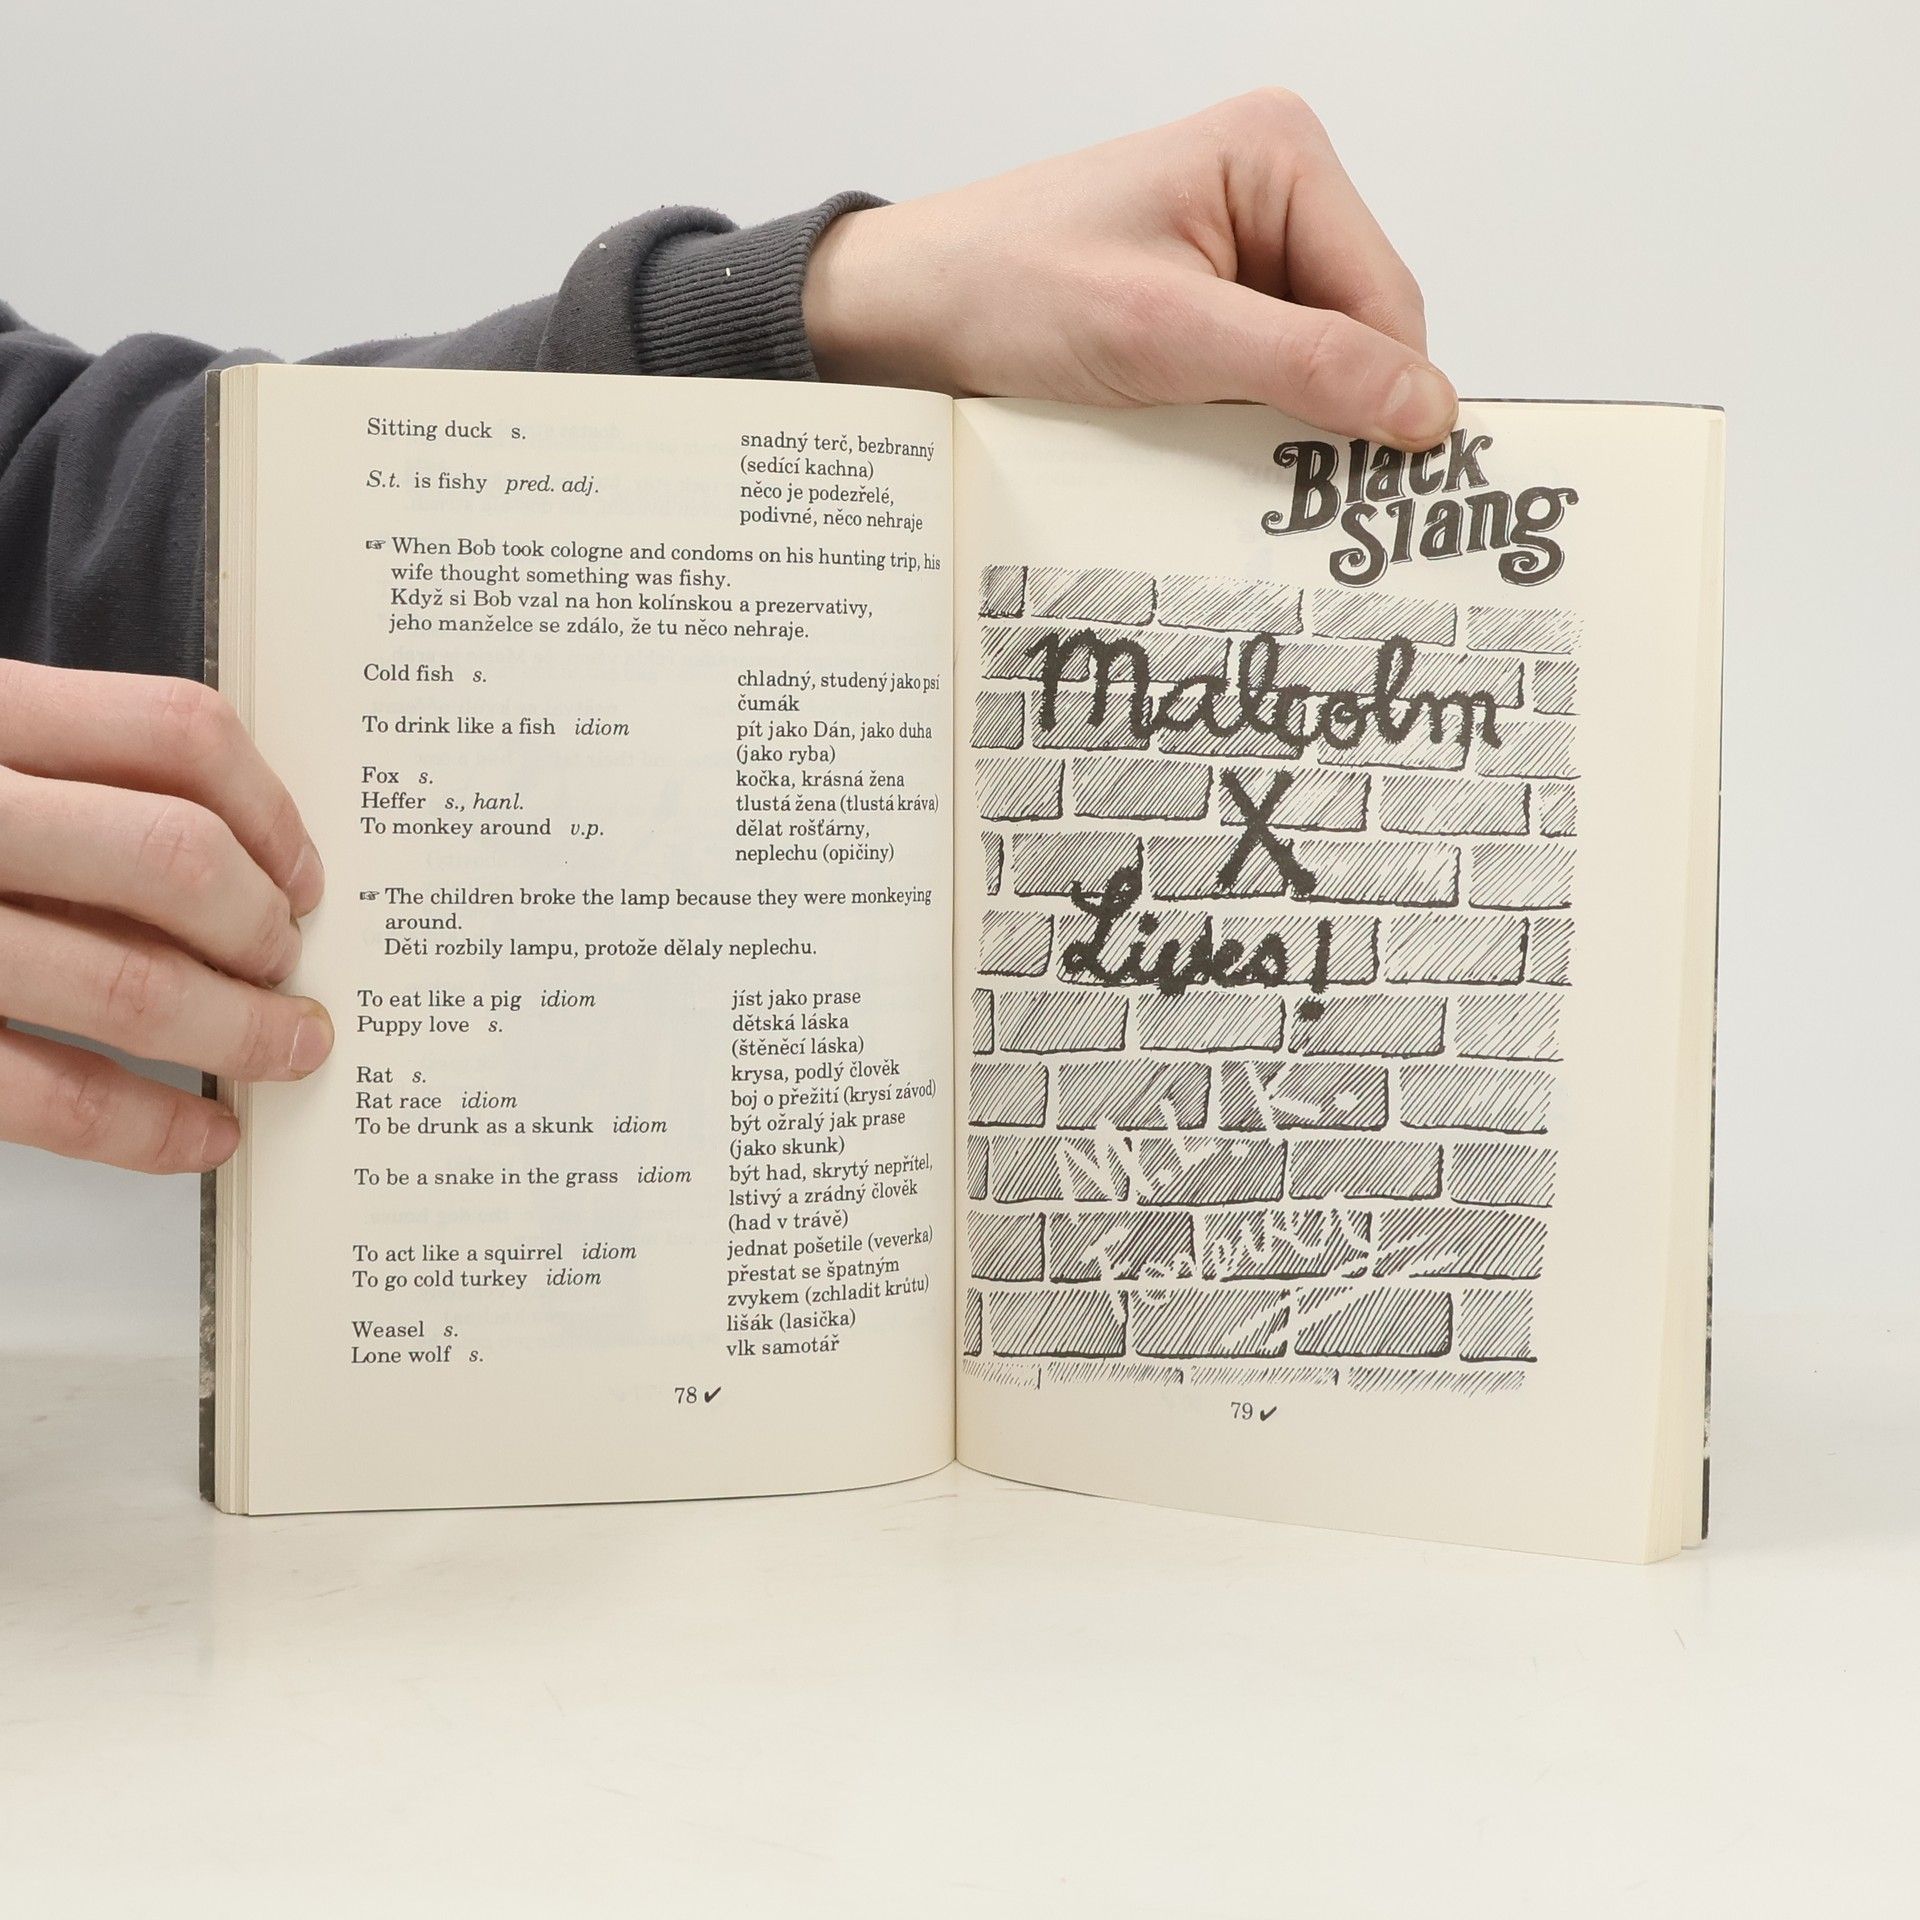 Sitting duck s. snadný terč, bezbranný
(sedící kachna)
S.t. is fishy pred. adj. něco je podezřelé,
podivné, něco nehraje
☞ When Bob took cologne and condoms on his hunting trip, his
wife thought something was fishy.
Když si Bob vzal na hon kolínskou a prezervativy,
jeho manželce se zdálo, že tu něco nehraje.
Cold fish s. chladný, studený jako psí
čumák
To drink like a fish idiom pít jako Dán, jako duha
(jako ryba)
Fox s. kočka, krásná žena
Heffer s., hanl. tlustá žena (tlustá kráva)
To monkey around v.p. dělat rošťárny,
neplechu (opičiny)
☞ The children broke the lamp because they were monkeying
around.
Děti rozbily lampu, protože dělaly neplechu.
To eat like a pig idiom jíst jako prase
Puppy love s. dětská láska
(štěněcí láska)
Rat s. krysa, podlý člověk
Rat race idiom boj o přežití (krysí závod)
To be drunk as a skunk idiom být ožralý jak prase
(jako skunk)
To be a snake in the grass idiom být had, skrytý nepřítel,
lstivý a zrádný člověk
(had v trávě)
To act like a squirrel idiom jednat pošetile (veverka)
To go cold turkey idiom přestat se špatným
zvykem (zchladit krůtu)
Weasel s. lišák (lasička)
Lone wolf s. vlk samotář
78 ✓
Black
Slang
Malcolm
X
Lives!
79 ✓